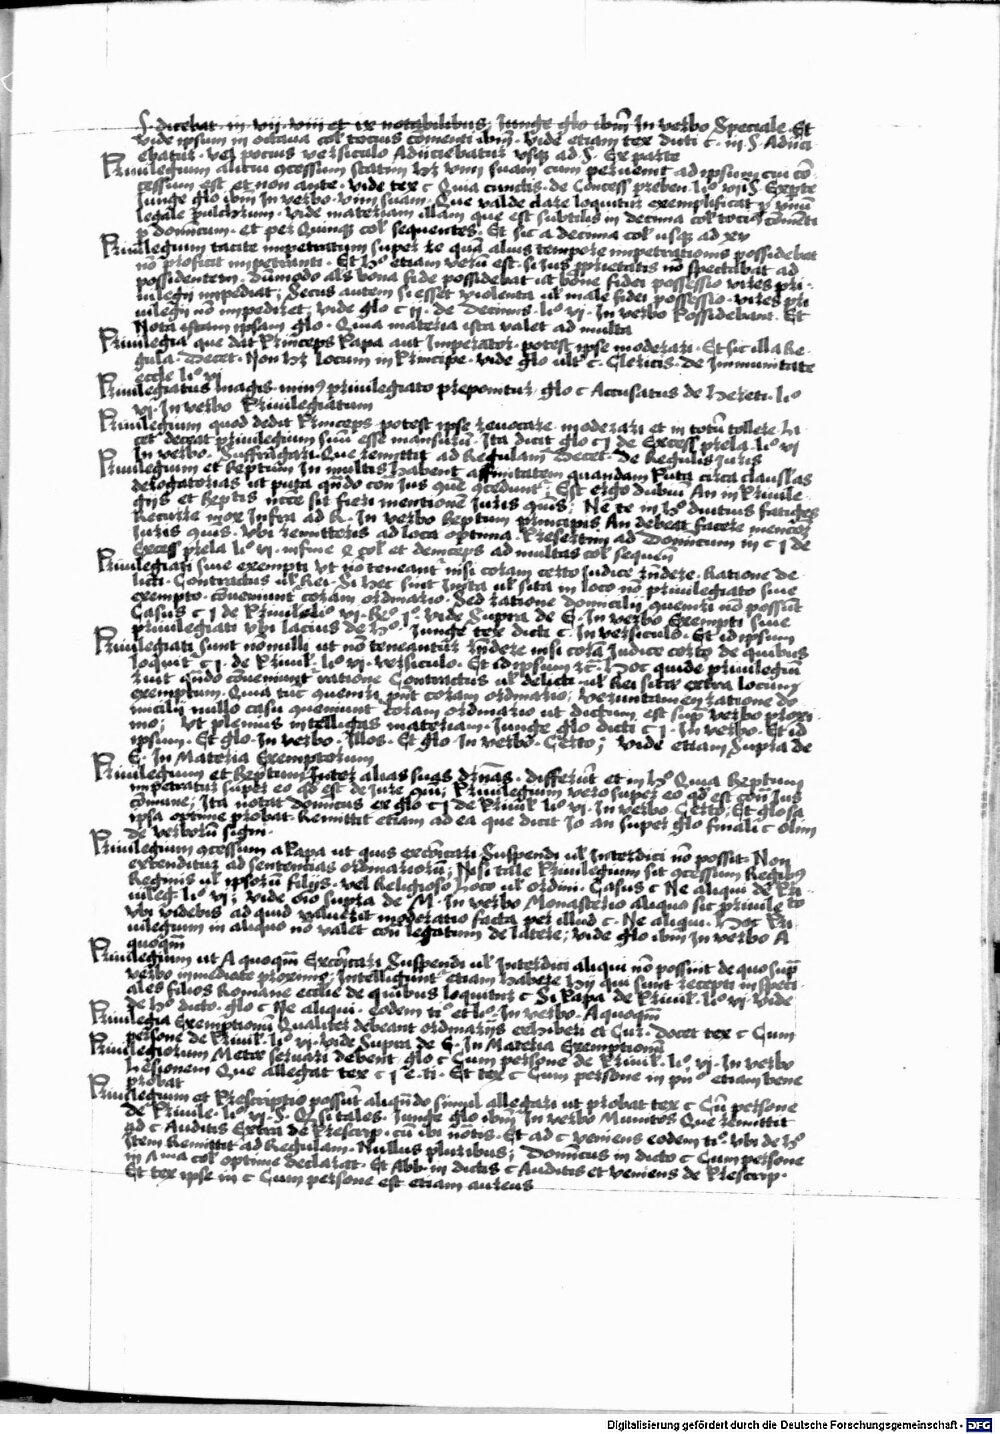 §. dicebat in vij. viij et ix notabilibus; Junge glo ibm̄ In verbo Speciale Et
vide ipsum in octaua col tocius comenti ibm̄. Vide etiam tex dicti c. iij §. Adiici
ebatur. Vel pocius versiculo Adiiciebatur vsqꝫ ad §. Ex parte
Priuilegium alicui ꝯcessum statim hꝫ vim suam cum peruenit ad ipsum cui cō
cessum est et non ante. vide tex c Quia cunctis. de Concess preben. li° vi §. Expte
Junge glo ibm In verbo. vim suam. Que valde clare loquitur exemplificat p vnū
legale pulchrum. Vide materiam illam que est subtilis in decima col tocius cōmēti
p dominicum. et per Quinqꝫ col sequentes. Et sic a decima col usqꝫ ad xv
Priuilegium tacite impetratum super re quā alius tempore impetrationis possidebat
nō proficit impetranti. Et h° etiam verū est. si ius ꝓprietatis nō spectabat ad
possidentem. Dūmodo als bona fide possidebat ut bone fidei possessio vires pri-
uilegij impediat; Secus autem si esset violenta ul male fidei possessio. vires pri
uilegij nō impediret; vide glo c ij. de Decimis. li° vi. In verbo Possidebant. Et
Nota istam ipsam glo. Quia materia ista valet ad multa
Priuilegia que dat Princeps Papa aut Imperator. potest ipse moderari. Et sic illa Re-
gula. Decet. Non hꝫ locum in Principe. vide glo ult c. Clericis. de Immunitate
eccle li° vi
Priuilegiatus magis. min9 priuilegiato preponitur. glo c Accusatus de Hereti. li°
vi. In verbo Priuilegiatum
Priuilegium quod dedit Princeps potest ipse reuocare. moderari et in totū tollere. li
cet deceat priuilegium suū esse mansurū. Ita dicit glo c j de Excess prela. li° vi
In verbo. Suffragari. Que remittit ad Regulam Decet. De Regulis Juris
Priuilegium et Reptum In multis habent affinitatem quandam Puta circa clauslas
derogatorias ut puta qn̄do con̄ Jus quē ꝯcedunt̄; Est ergo dubiū An in Priuile-
gijs et Reptis nc̄ce sit fieri mentionē Juris quis; Ne te in h° diutius fatiges
Recurre mox Infra ad R. In verbo Reptum principis An debeat facere mencoꝫ
Juris quis. Vbi remitteris ad loca optima. Presertim ad Dominicum in c j de
Excess prela li° vi. in fine Q col et deinceps ad multas col sequen̄
Priuilegiati siue exempti Vt nō teneant̄ nisi coram certo Judice rn̄dere. Ratione de-
licti. Contractus ul Rei. Si hec sint Inita ul sita in loco nō priuilegiato siue
exempto. cōueniunt̄ coram ordinario. Sed ratione domicilij queniri nō possūt
Casus c j de Priuile. li° vi. Re° j°. vide Supra de E. In verbo Exempti siue
priuilegiati Vbi lacius de h°. Junge tex dicti c. In versiculo. Et id ipsum
Priuilegiati sunt nōnulli ut nō teneantur rn̄dere nisi corā Judice certo de quibus
loquit̄ c j. de Priuil. li° vi. versiculo. Et id ipsum rc̄. Hoc quide priuilegiū
ruit qn̄do cōueniunt̄ ratione Contractus ul delicti. ul Rei site extra locum
exemptum. Quia tūc queniri pn̄t coram ordinario; verumtamen ratione do
micilij nullo casu queniunt̄ coram ordinario ut dictum est supra verbo proxi-
mo; Vt plenius intelligas materiam. Junge glo dicti c j. In verbo. Et id
ipsum. Et glo. In verbo. Illos. Et glo. In verbo. Certo; Vide etiam Supra de
E. In Materia Exemptorum
Priuilegium et Reptum Inter alias suas drn̄as. Differūt et in h° Quia Reptum
impetratur super eo qd est de Jure qui; Priuilegium vero super eo qd est con̄ Jus
cōmune; Ita notat dominicus ex glo c j de Priuil. li° vi. In verbo Certo; Et glosa
ipsa optime probat. Remittit etiam ad ea que dicit Jo an super glo finali c Olim
de verborū signi.
Priuilegium ꝯcessum a Papa ut quis excōicari Suspendi ul Interdici nō possit. Non
extenditur ad sentencias ordinariorū; Nisi tale Priuilegium sit ꝯcessum Regibꝫ
Reginis ul ipsorū filijs. Vel Religioso loco ul ordini. Casus c Ne aliqui de Pri-
uileg. li° vi; Vide oīo supra de M. In verbo Monasterio aliquo sic priuile to
Vbi videbis ad quid valuerit moderatio facta per illud c. Ne aliqui. Hoc Pri-
uilegium in aliquo nō valet con̄ legatum de latere; vide glo ibm In verbo A
quoqm̄
Priuilegium ut A quoqm̄ Excōicari Suspendi ul Interdici aliqui nō possint de quo supra
verbo immediate proximo; Intelligunt̄ etiam habere Hij qui sunt recepti in speci-
ales filios Romane ecclie de quibus loquitur c Si Papa de Priuil. li° vi. Vide
de h° dicto. glo c Ne aliqui. eodem ti° et li°. In verbo. A quoqm̄
Priuilegia Exemptionū Qualiter debeant ordinarijs exhiberi et Cur. Docet tex c Cum
persone de Priuil. li° vi. Vide Supra de E. In Materia Exemptionū
Priuilegiorum Mete seruari debent glo c Cum persone de Priuil. li° vi. In verbo
Lesionem Que allegat tex c j° e. ti. Et tex c Cum persone in pn° etiam bene
probat
Priuilegium et Prescriptio possūt aliqn̄do simul allegari ut probat tex c Cū persone
de Priuile. li° vi. §. Q si tales. Junge glo ibm̄ In verbo Munitos Que remittit
ad c Auditis Extra de Prescrip. cū ibi nōtis. Et ad c veniens eodem ti°. vbi de h°
Item Remittit ad Regulam. Nullus pluribus; Dominicus in dicto c Cum persone
in ma col optime declarat. Et Abb. in dictis c Auditis et veniens de Prescrip.
Et tex ipse in c Cum persone est etiam aureus
Digitalisierung gefördert durch die Deutsche Forschungsgemeinschaft - DFG